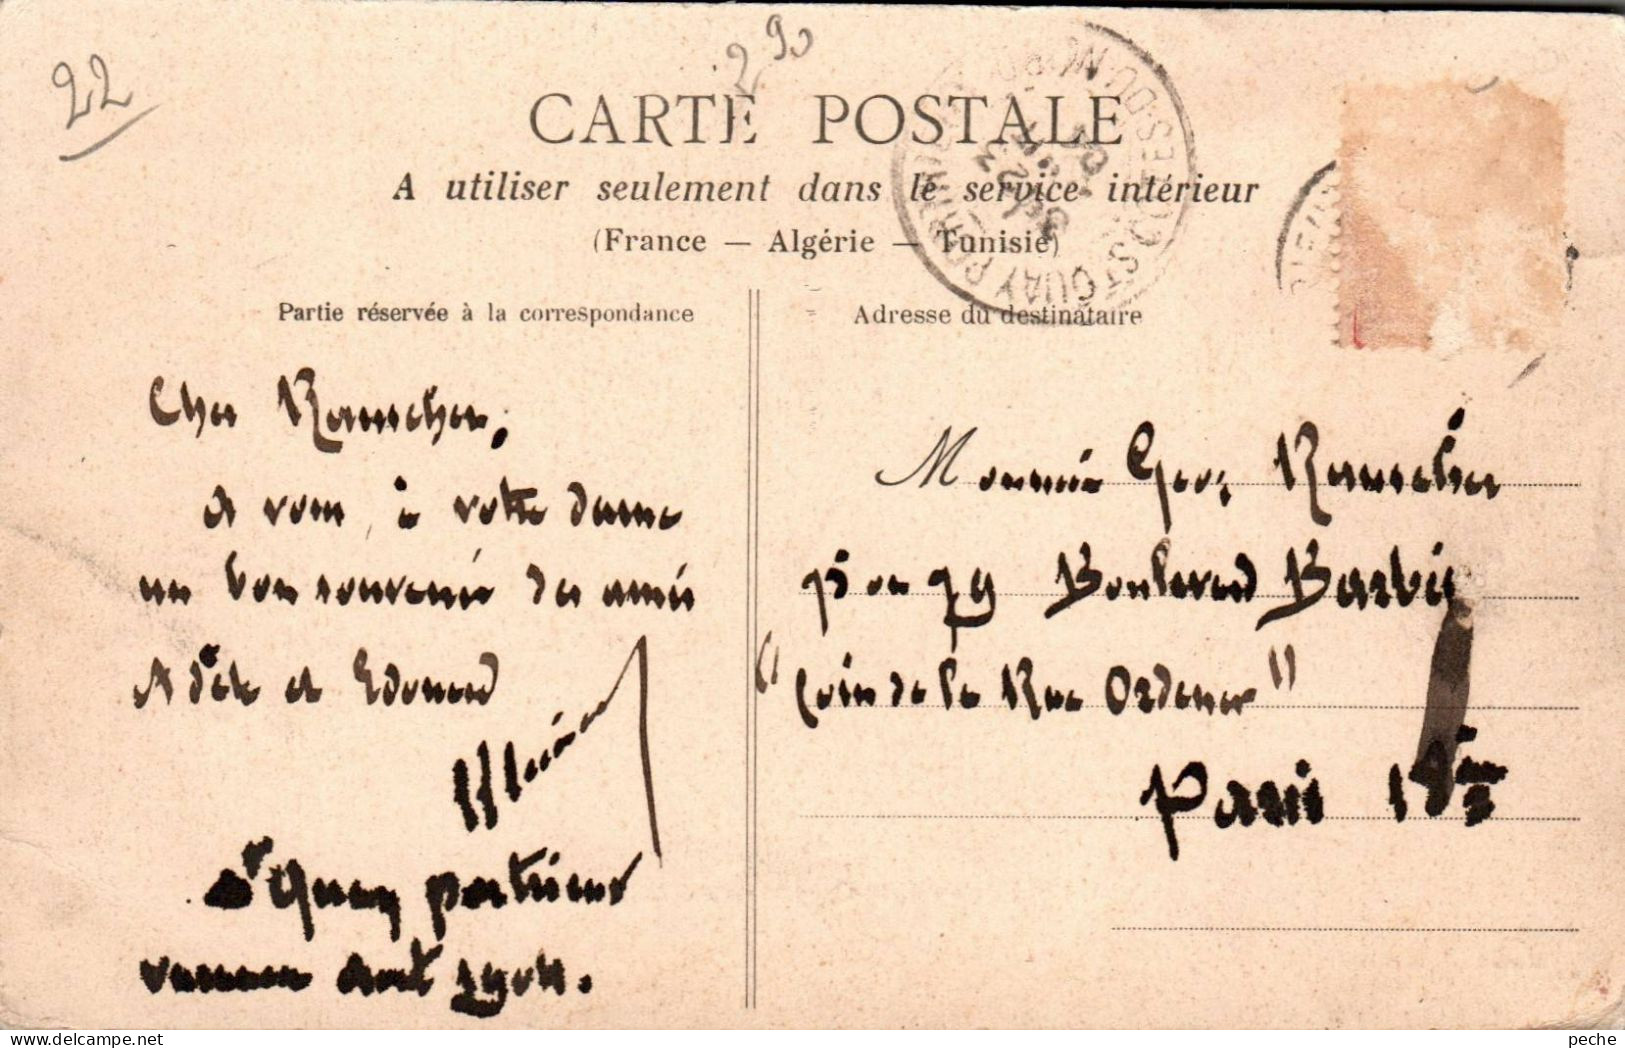 22
290
CARTE POSTALE
A utiliser seulement dans le service intérieur
(France — Algérie — Tunisie)
Partie réservée à la correspondance
Cher Kaucher,
A vous, à votre dame
un bon souvenir des amis
Adèle et Edouard
St Quay portrieux
vacances Aout 1904.
ST QUAY PORTRIEUX
CÔTES-DU-NORD
Adresse du destinataire
Monsieur Geo.
79 Boulevard Barbès
"Coin de la Rue Ordener"
Paris 18ème
peche